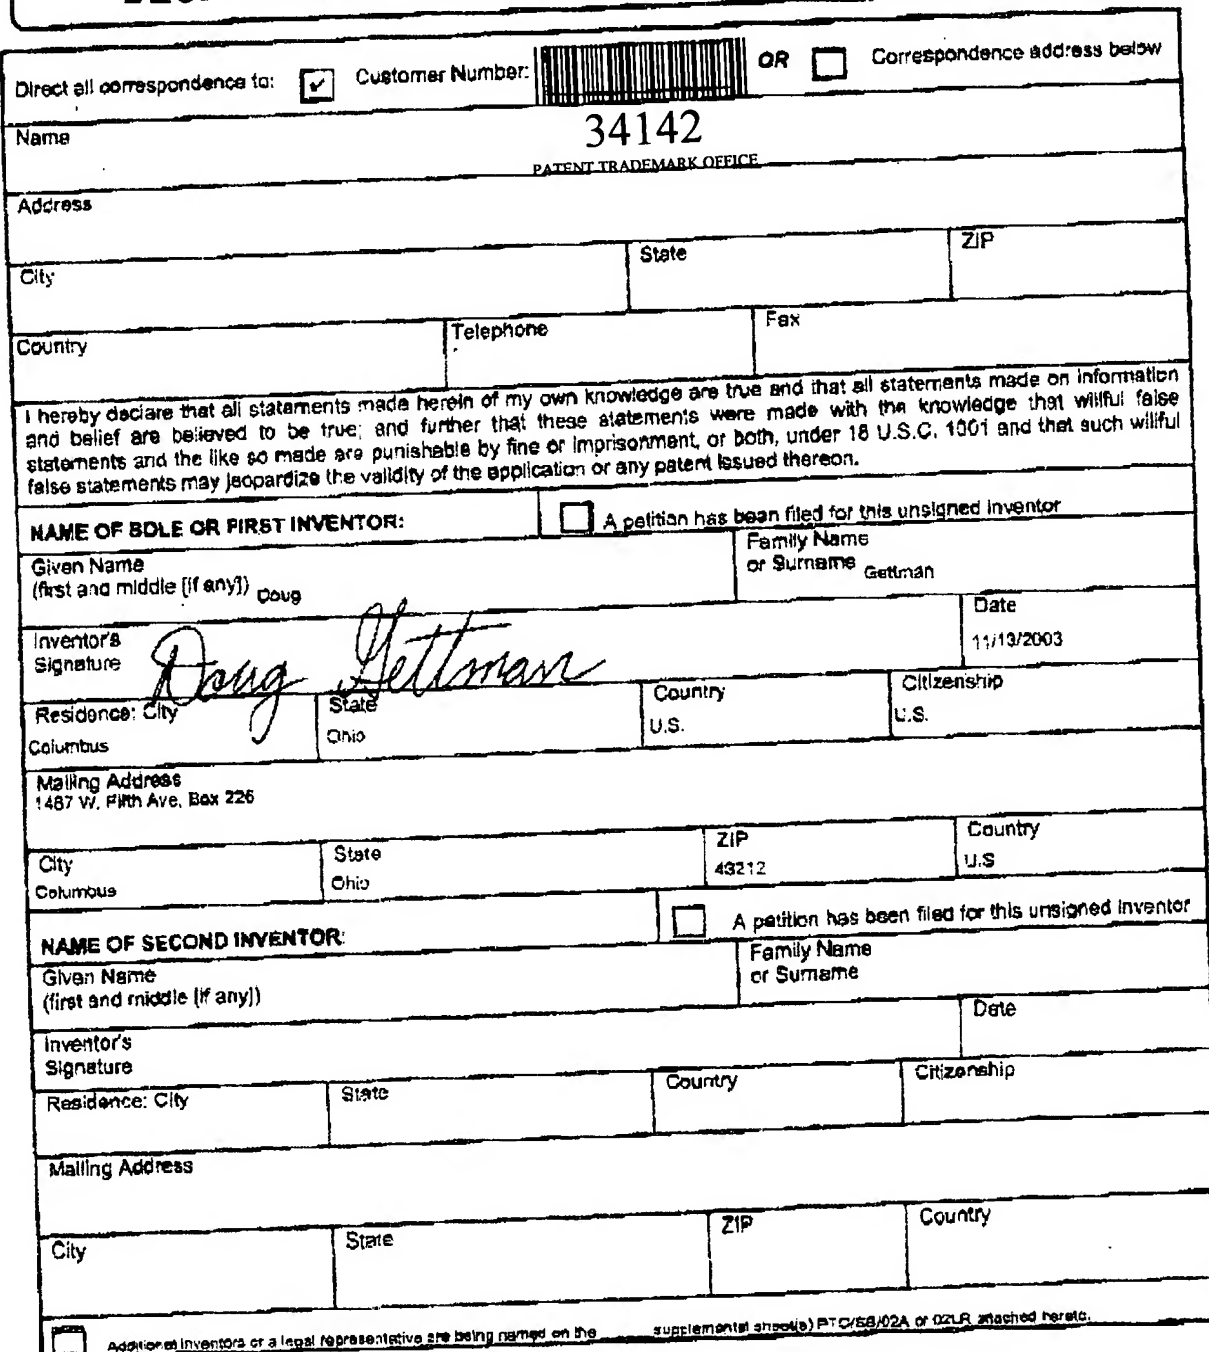 Direct all correspondence to: ✓ Customer Number: OR Correspondence address below
34142
PATENT TRADEMARK OFFICE
Name
Address
City State ZIP
Country Telephone Fax
I hereby declare that all statements made herein of my own knowledge are true and that all statements made on information
and belief are believed to be true; and further that these statements were made with the knowledge that willful false
statements and the like so made are punishable by fine or imprisonment, or both, under 18 U.S.C. 1001 and that such willful
false statements may jeopardize the validity of the application or any patent issued thereon.
NAME OF SOLE OR FIRST INVENTOR: A petition has been filed for this unsigned inventor
Given Name
(first and middle [if any]) Doug
Family Name
or Surname Gettman
Inventor's
Signature Doug Gettman
Date
11/13/2003
Residence: City State Country Citizenship
Columbus Ohio U.S. U.S.
Mailing Address
1487 W. Fifth Ave, Box 226
City State ZIP Country
Columbus Ohio 43212 U.S
NAME OF SECOND INVENTOR: A petition has been filed for this unsigned inventor
Given Name
(first and middle [if any])
Family Name
or Surname
Inventor's
Signature
Date
Residence: City State Country Citizenship
Mailing Address
City State ZIP Country
Additional inventors or a legal representative are being named on the ____ supplemental sheet(s) PTO/SB/02A or 02LR attached hereto.